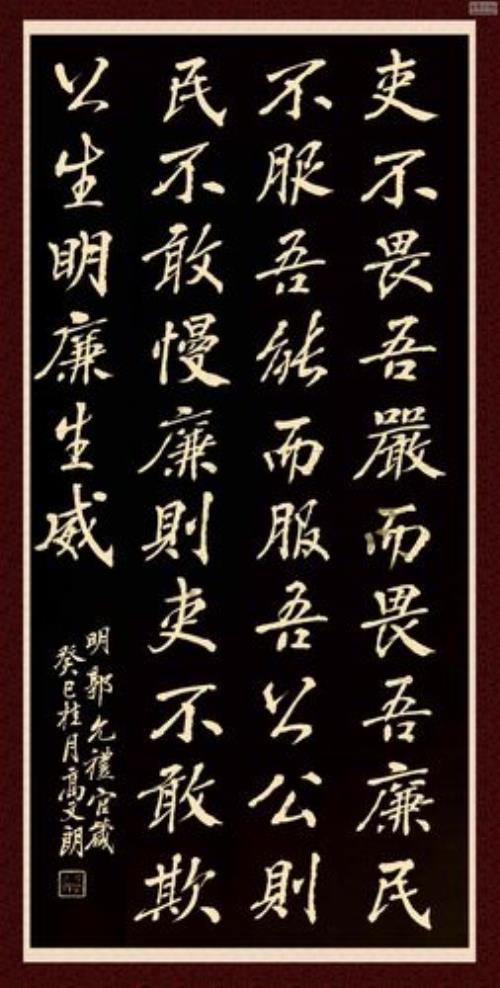 吏不畏吾嚴而畏吾廉民
不服吾能而服吾公公則
民不敢慢廉則吏不敢欺
公生明廉生威
明郭允禮官箴
癸巳桂月高文朗